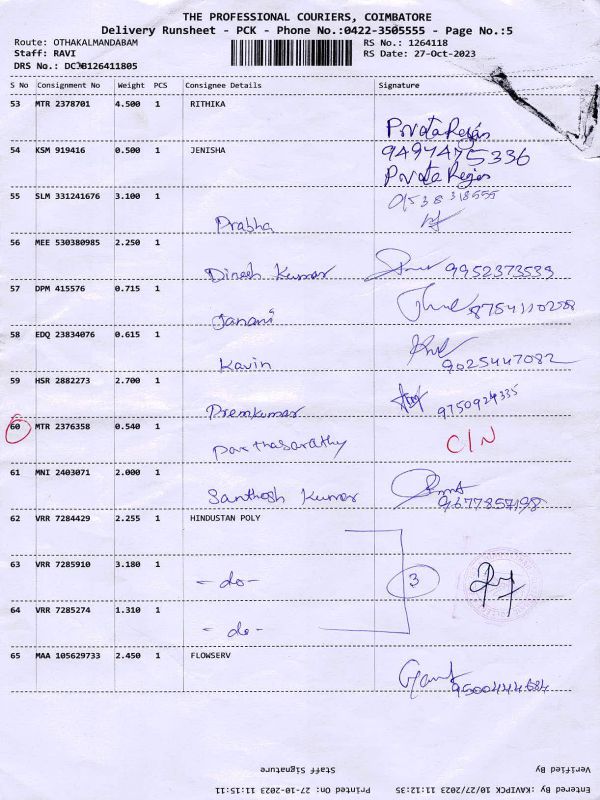 THE PROFESSIONAL COURIERS, COIMBATORE
Delivery Runsheet - PCK - Phone No.:0422-3505555 - Page No.:5
Route: OTHAKALMANDABAM RS No.: 1264118
Staff: RAVI RS Date: 27-Oct-2023
DRS No.: DCJB126411805
S No Consignment No Weight PCS Consignee Details Signature
53 MTR 2378701 4.500 1 RITHIKA
54 KSM 919416 0.500 1 JENISHA 9494745336
55 SLM 331241676 3.100 1
Prabha
56 MEE 530380985 2.250 1
Dinesh Kumar 9952373539
57 DPM 415576 0.715 1
Janani 8754110258
58 EDQ 23834076 0.615 1
Kavin 9025447082
59 HSR 2882273 2.700 1
Premkumar 9750924335
60 MTR 2376358 0.540 1
Parthasarathy C/N
61 MNI 2403071 2.000 1
Santhosh Kumar 9677857198
62 VRR 7284429 2.255 1 HINDUSTAN POLY
63 VRR 7285910 3.180 1
- do - 3
64 VRR 7285274 1.310 1
- do -
65 MAA 105629733 2.450 1 FLOWSERV
9500444684
Verified By Staff Signature
Entered By :KAVIPCK 10/27/2023 11:12:35 Printed On: 27-10-2023 11:15:11